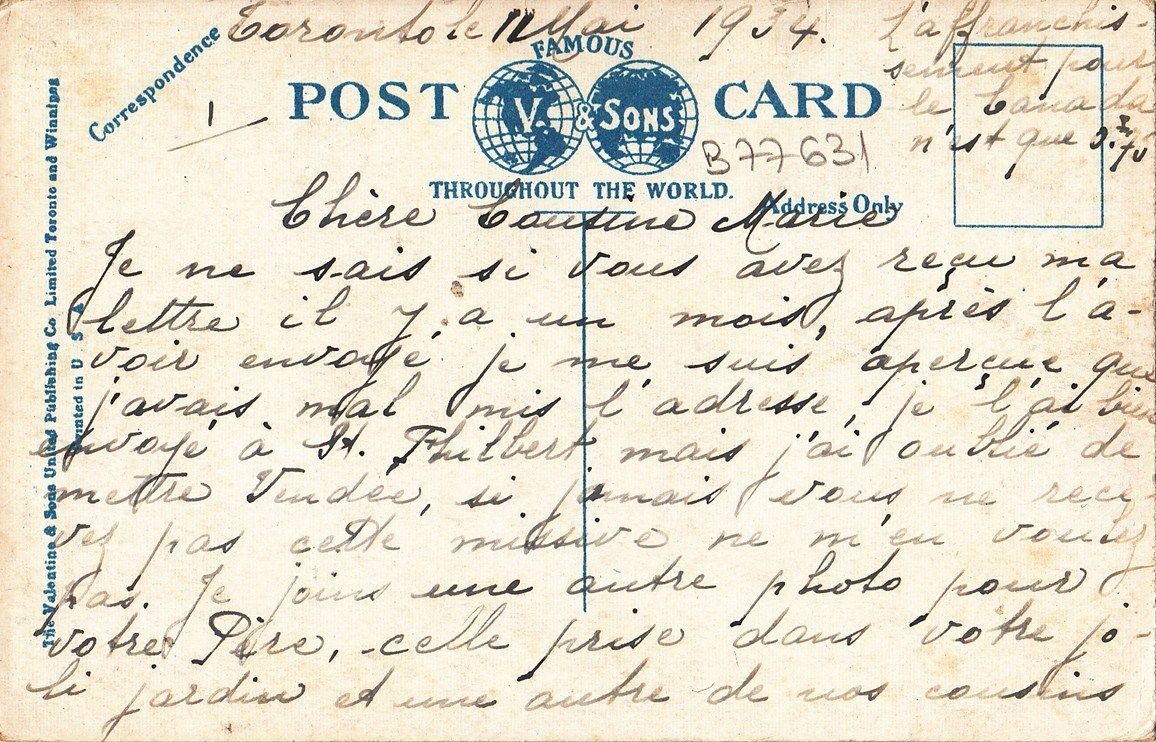 Toronto le 11 Mai 1934.
L'affranchis-
sement pour
le Canada
n'est que
Correspondence
1
FAMOUS
POST CARD
V. & SONS
B77631
THROUGHOUT THE WORLD.
Address Only
The Valentine & Sons United Publishing Co Limited Toronto and Winnipeg
Printed in U S A
Chère Cousine Marie
Je ne sais si vous avez reçu ma
lettre il y a un mois, après l'a-
voir envoyé, je me suis aperçue que
j'avais mal mis l'adresse, je l'ai bien
envoyé à St. Philbert mais j'ai oublié de
mettre Vendée, si jamais vous ne rece-
vez pas cette missive ne m'en voulez
pas. Je joins une autre photo pour
votre Père, celle prise dans votre jo-
li jardin et une autre de nos cousins